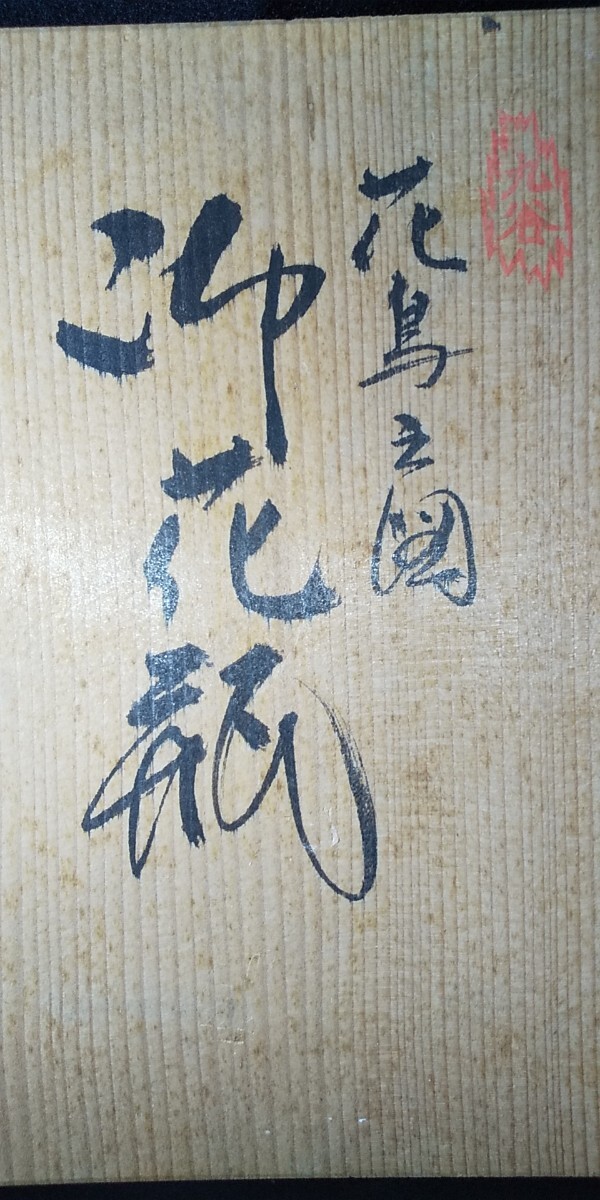 九谷
花鳥之図
御花瓶